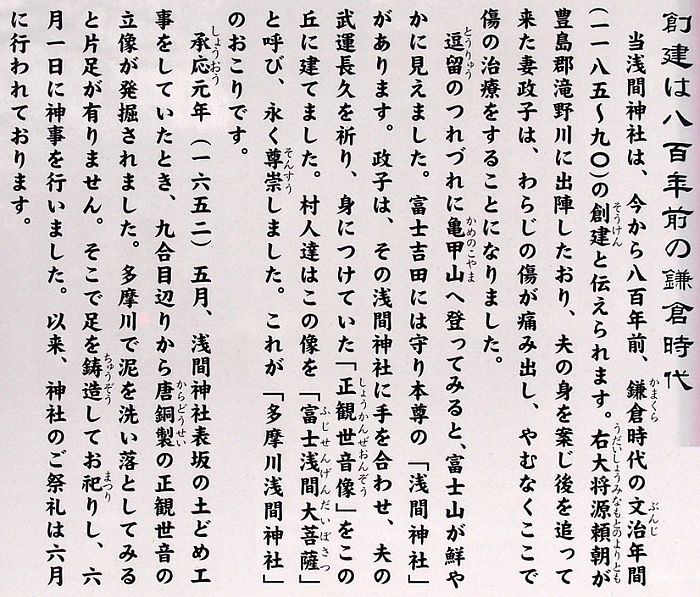 創建は八百年前の鎌倉時代
当浅間神社は、今から八百年前、鎌倉時代の文治年間
(一一八五〜九〇)の創建と伝えられます。右大将源頼朝が
豊島郡滝野川に出陣したおり、夫の身を案じ後を追って
来た妻政子は、わらじの傷が痛み出し、やむなくここで
傷の治療をすることになりました。
逗留のつれづれに亀甲山へ登ってみると、富士山が鮮や
かに見えました。富士吉田には守り本尊の「浅間神社」
があります。政子は、その浅間神社に手を合わせ、夫の
武運長久を祈り、身につけていた「正観世音像」をこの
丘に建てました。村人達はこの像を「富士浅間大菩薩」
と呼び、永く尊崇しました。これが「多摩川浅間神社」
のおこりです。
承応元年(一六五二)五月、浅間神社表坂の土どめ工
事をしていたとき、九合目辺りから唐銅製の正観世音の
立像が発掘されました。多摩川で泥を洗い落としてみる
と片足が有りません。そこで足を鋳造してお祀りし、六
月一日に神事を行いました。以来、神社のご祭礼は六月
に行われております。